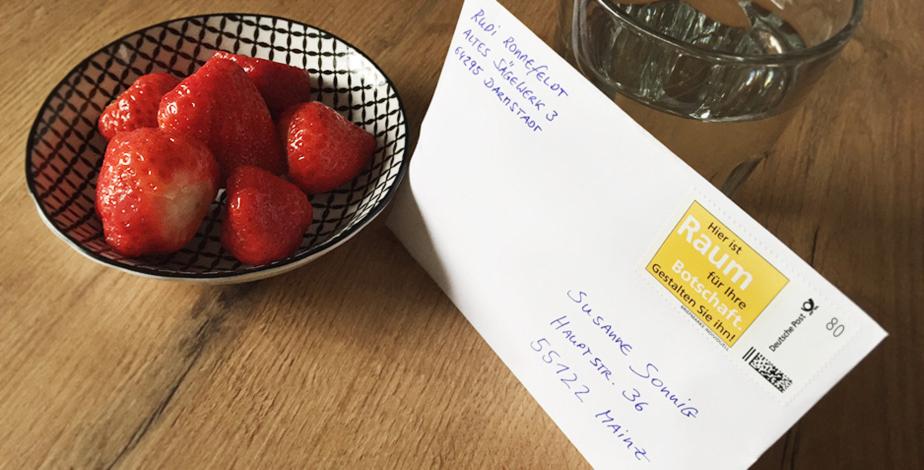 RUDI RONNEFELDT
ALTES SÄGEWERK 3
64295 DARMSTADT
Hier ist
Raum
für Ihre
Botschaft.
Gestalten Sie ihn!
BRIEFMARKE INDIVIDUELL
Deutsche Post
80
SUSANNE SONNIG
HAUPTSTR. 36
55122 MAINZ